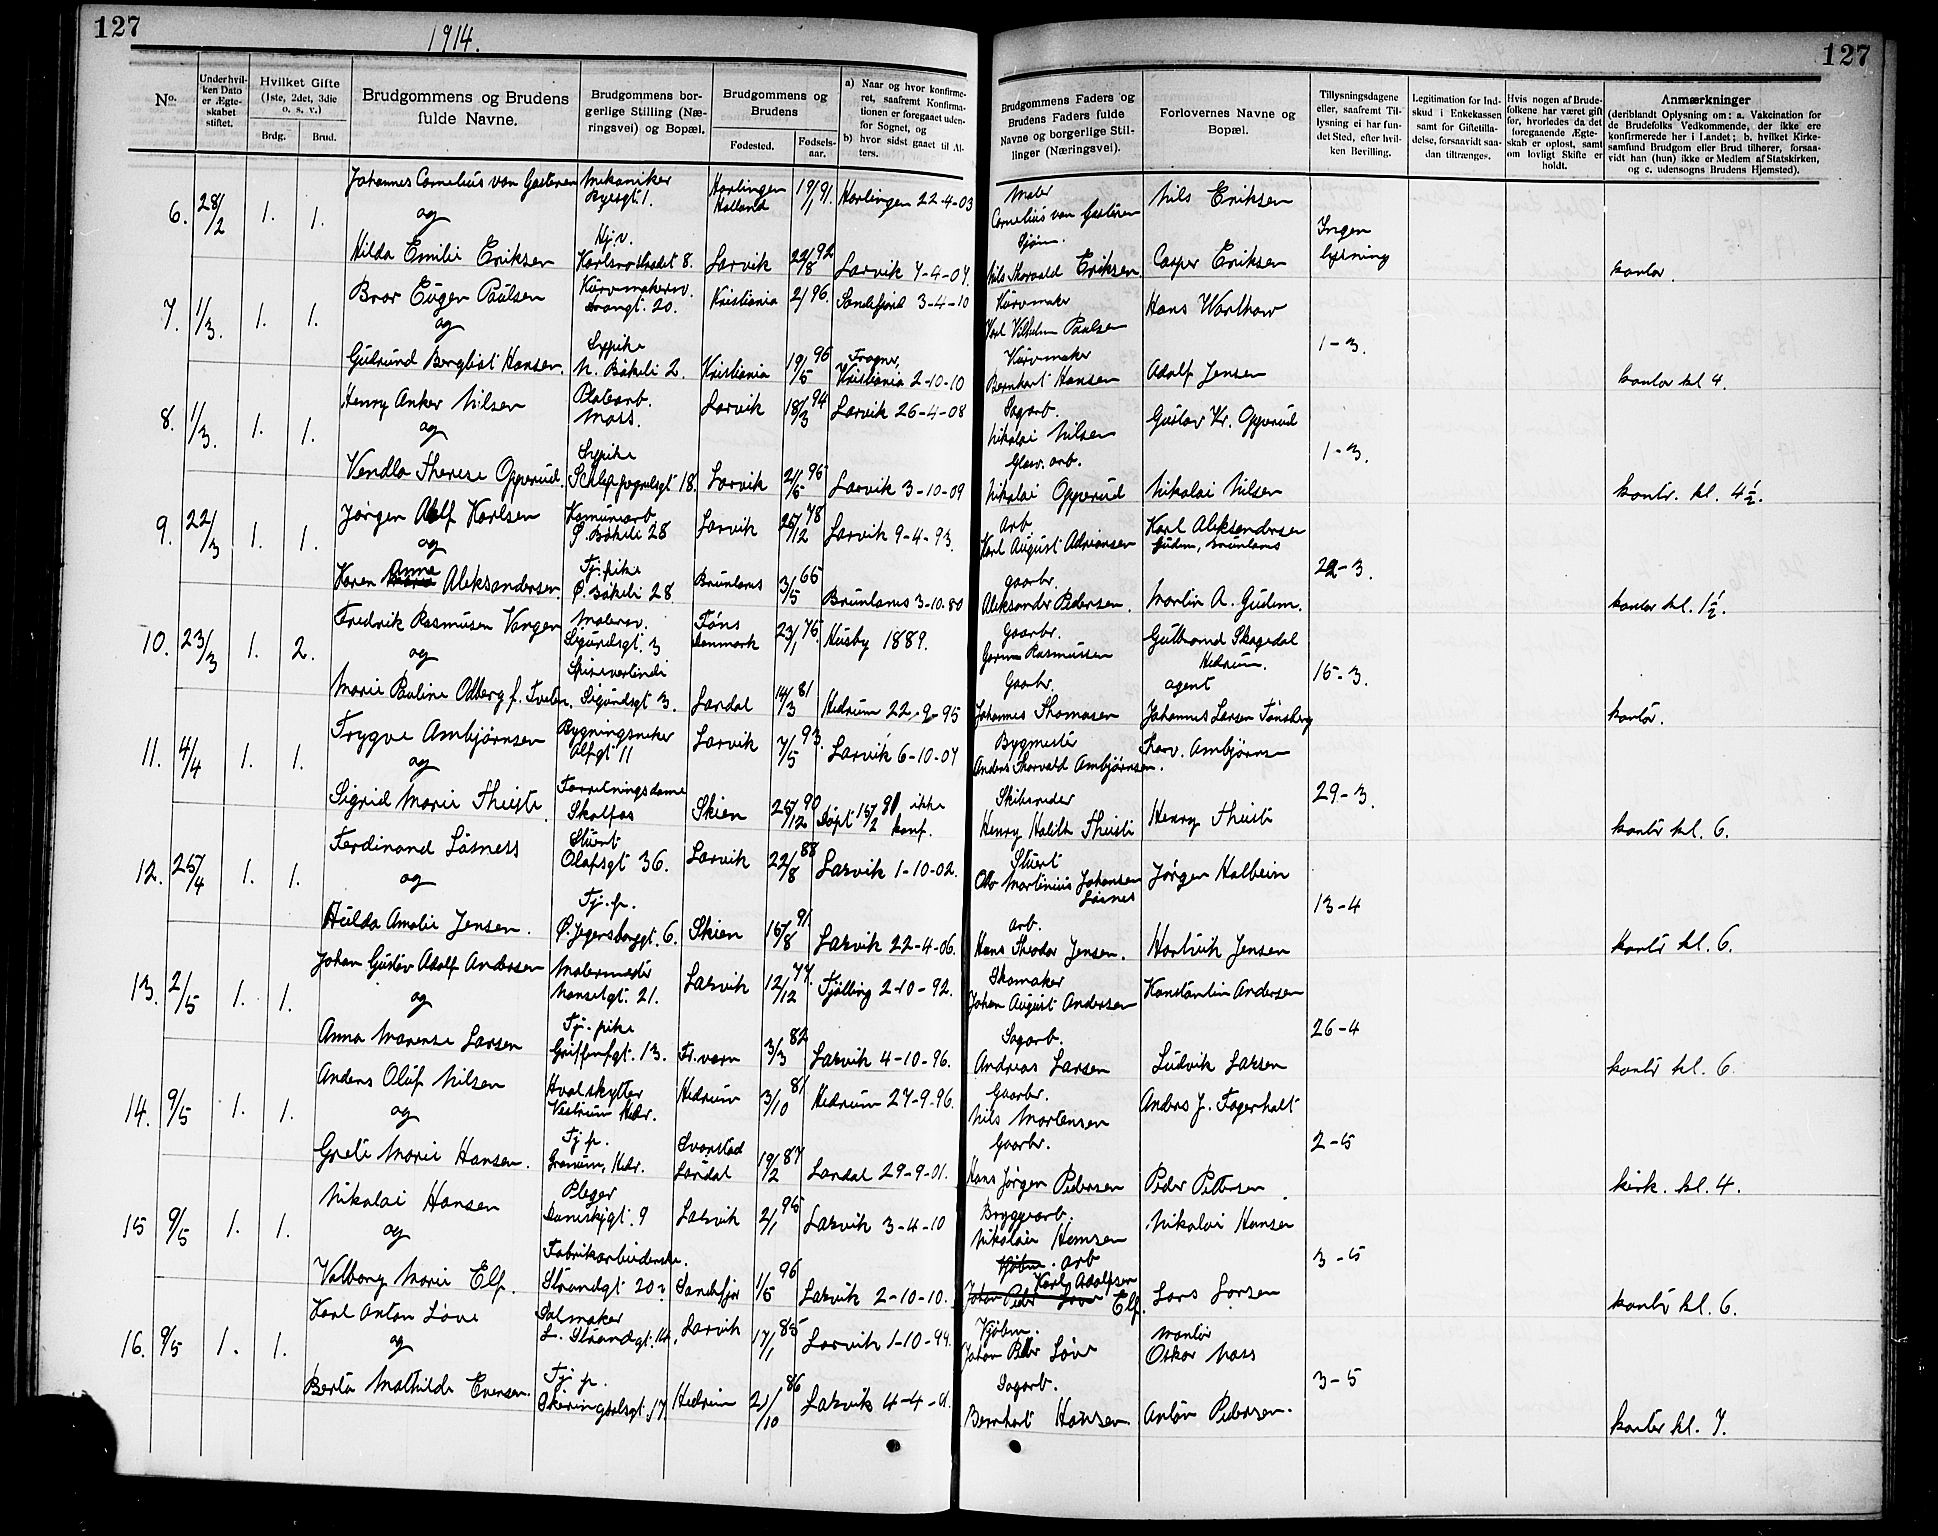 127
1914.
127
No.
Under hvil-
ken Dato
er Ægte-
skabet
stiftet.
Hvilket Gifte
(1ste, 2det, 3die
o. s. v.)
Brdg.
Brud.
Brudgommens og Brudens
fulde Navne.
Brudgommens bor-
gerlige Stilling (Næ-
ringsvei) og Bopæl.
Brudgommens og
Brudens
Fødested.
Fødsels-
aar.
a) Naar og hvor konfirme-
ret, saafremt Konfirma-
tionen er foregaaet uden-
for Sognet, og
b) hvor sidst gaaet til Al-
ters.
Brudgommens Faders og
Brudens Faders fulde
Navne og borgerlige Stil-
linger (Næringsvei).
Forlovernes Navne og
Bopæl.
Tillysningsdagene
eller, saafremt Til-
lysning ei har fun-
det Sted, efter hvil-
ken Bevilling.
Legitimation for Ind-
skud i Enkekassen
samt for Giftetilla-
delse, forsaavidt saa-
dan tiltrænges.
Hvis nogen af Brude-
folkene har været gift
før, hvorledes da det
foregaaende Ægte-
skab er opløst, samt
om lovligt Skifte er
holdt.
Anmærkninger
(deriblandt Oplysning om: a. Vakcination for
de Brudefolks Vedkommende, der ikke ere
konfirmerede her i Landet; b. hvilket Kirke-
samfund Brudgom eller Brud tilhører, forsaa-
vidt han (hun) ikke er Medlem af Statskirken,
og c. udensogns Brudens Hjemsted).
6. 28/2 1. 1. Johannes Cornelius van Gasteren Mekaniker Harlingen Holland 19/1 91. Harlingen 22-4-03 Maler Cornelius van Gasteren Nils Eriksen
og
Ingen lysning
Hilda Emilie Eriksen Hj.v. Karlsrostradet 8. Larvik 22/8 92 Larvik 7-4-07. Sjøm. Nils Thorvald Eriksen Casper Eriksen kontor.
7. 1/3. 1. 1. Bror Eugen Paulsen Kurvmakersv. Trangt. 20. Kristiania 2/ 96. Sandefjord 3-4-10 Kurvmaker Karl Vilhelm Paulsen Hans Warthow
og
1-3.
Gudrund Bergliot Hansen. Sypike N. Bøkeli 2. Kristiania 19/5 96 Frogner, Kristiania 2-10-10 Kurvmaker Bernhart Hansen Adolf Jensen kontor kl 4.
8. 1/3. 1. 1. Henry Anker Nilsen Platearb. Moss. Larvik 18/3 94 Larvik 26-4-08 Sagarb. Nikolai Nilsen Gustav Kr. Opperud
og
1-3.
Vendla Therese Opperud. Sypike Larvik 21/6 95 Larvik 3-10-09 Glasv. arb. Nikolai Opperud Nikolai Nilsen kontr. kl. 4½.
9. 22/3 1. 1. Jørgen Alf Karlsen Komunearb. Ø. Bøkeli 28 Larvik 25/12 78 Larvik 9-4-93. arb Karl August Adriansen Karl Aleksandersen Gudem, Brunlanes
og
22-3.
Karen Anna Aleksandersen. Tj. pike Ø. Bøkeli 28. Brunlanes 3/5 66 Brunlanes 3-10.80 gaarbr. Aleksander Pedersen. Martin A. Gudem. kontor kl. 1½.
10. 23/3 1. 2. Fredrik Rasmusen Vangen Malersv. Sigurdsgt. 3 Føns Danmark 23/1 75. Husby 1889. Gaarbr. Rasmussen Gulbrand Skagedal Hedrum.
og
15-3.
Marie Pauline Odberg f. Tveten. Spisevertinde Sigurdsgt 3. Lardal 14/3 81 Hedrum 22-9-95 Gaarbr. Johannes Thomasen agent Johannes Larsen Tønsberg kontor.
11. 4/4 1. 1. Trygve Ambjørnsen Bygningssneker Olfgt 11 Larvik 7/5 93. Larvik 6-10-07 Bygmester Anders Thorvald Ambjørnsen. Thorv. Ambjørnsen
og
29-3.
Sigrid Marie Thuste. Forretningsdame Skotfos Skien 25/12 90 Døpt 15/2 91 ikke konf. Skibsreder Henry Thuste Henry Thuste kontor kl. 6.
12. 25/4 1. 1. Ferdinand Løsness Stuert Olafsgt 36. Larvik 22/8 88 Larvik 1-10-02. Stuert Olav Martinius Johansen Løsnes Jørgen Holbein
og
13-4
Hulda Amalie Jensen. Tj. p. Ø. Jegersborggt. 6. Skien 16/8 91 Larvik 22-4-06. arb. Hans Theodor Jensen. Hartvik Jensen kontor kl. 6.
13. 2/5 1. 1. Johan Gustav Adolf Andersen Malermester Nansetgt. 21. Larvik 12/12 77. Tjølling 2-10-92. Skomaker Johan August Andersen Konstantin Andersen
og
26-4
Anna Marense Larsen Tj. pike Griffenfgt. 13. Fr.værn 3/3 82 Larvik 4-10-96. Sagarb. Andreas Larsen Ludvik Larsen kontor kl. 6
14. 9/5 1. 1. Anders Oluf Nilsen Hvalskytter Hedrum 3/10 81 Hedrum 27-9-96. Gaarbr. Nils Mortensen Anders J. Fagerholt
og
2-5
Grete Marie Hansen. Tj p. Granum, Hedr. Svarstad Lardal 19/2 87 Lardal 29-9-01. Gaarbr. Hans Jørgen Pedersen Peder Pettersen kirk. kl. 4.
15 9/5 1. 1. Nikolai Hansen Pleger Larvik 2/1 95 Larvik 3-4-10 Bryggearb. Nikolai Hansen Nikolai Hansen
og
3-5
Valborg Marie Elf. Fabrikarbeiderske. Strandgt 20 Sandefjor 1/5 96 Larvik 2-10-10. arb Karl Adolfsen Elf. Lars Larsen kontor kl. 6.
16. 9/5 1. 1. Karl Anton Løve Salmaker L. Strandgt. 14, Larvik 17/1 85 Larvik 1-10-99. Kjøbm. Johan Peder Løve Montør Oskar Nass
og
3-5
Berta Mathilde Evensen. Tj. p. Skiringsalsgt. 17. Hedrum 21/10 86 Larvik 4-4-01. Sagarb. Bernhart Hansen Anton Pedersen. kontor kl. 7.